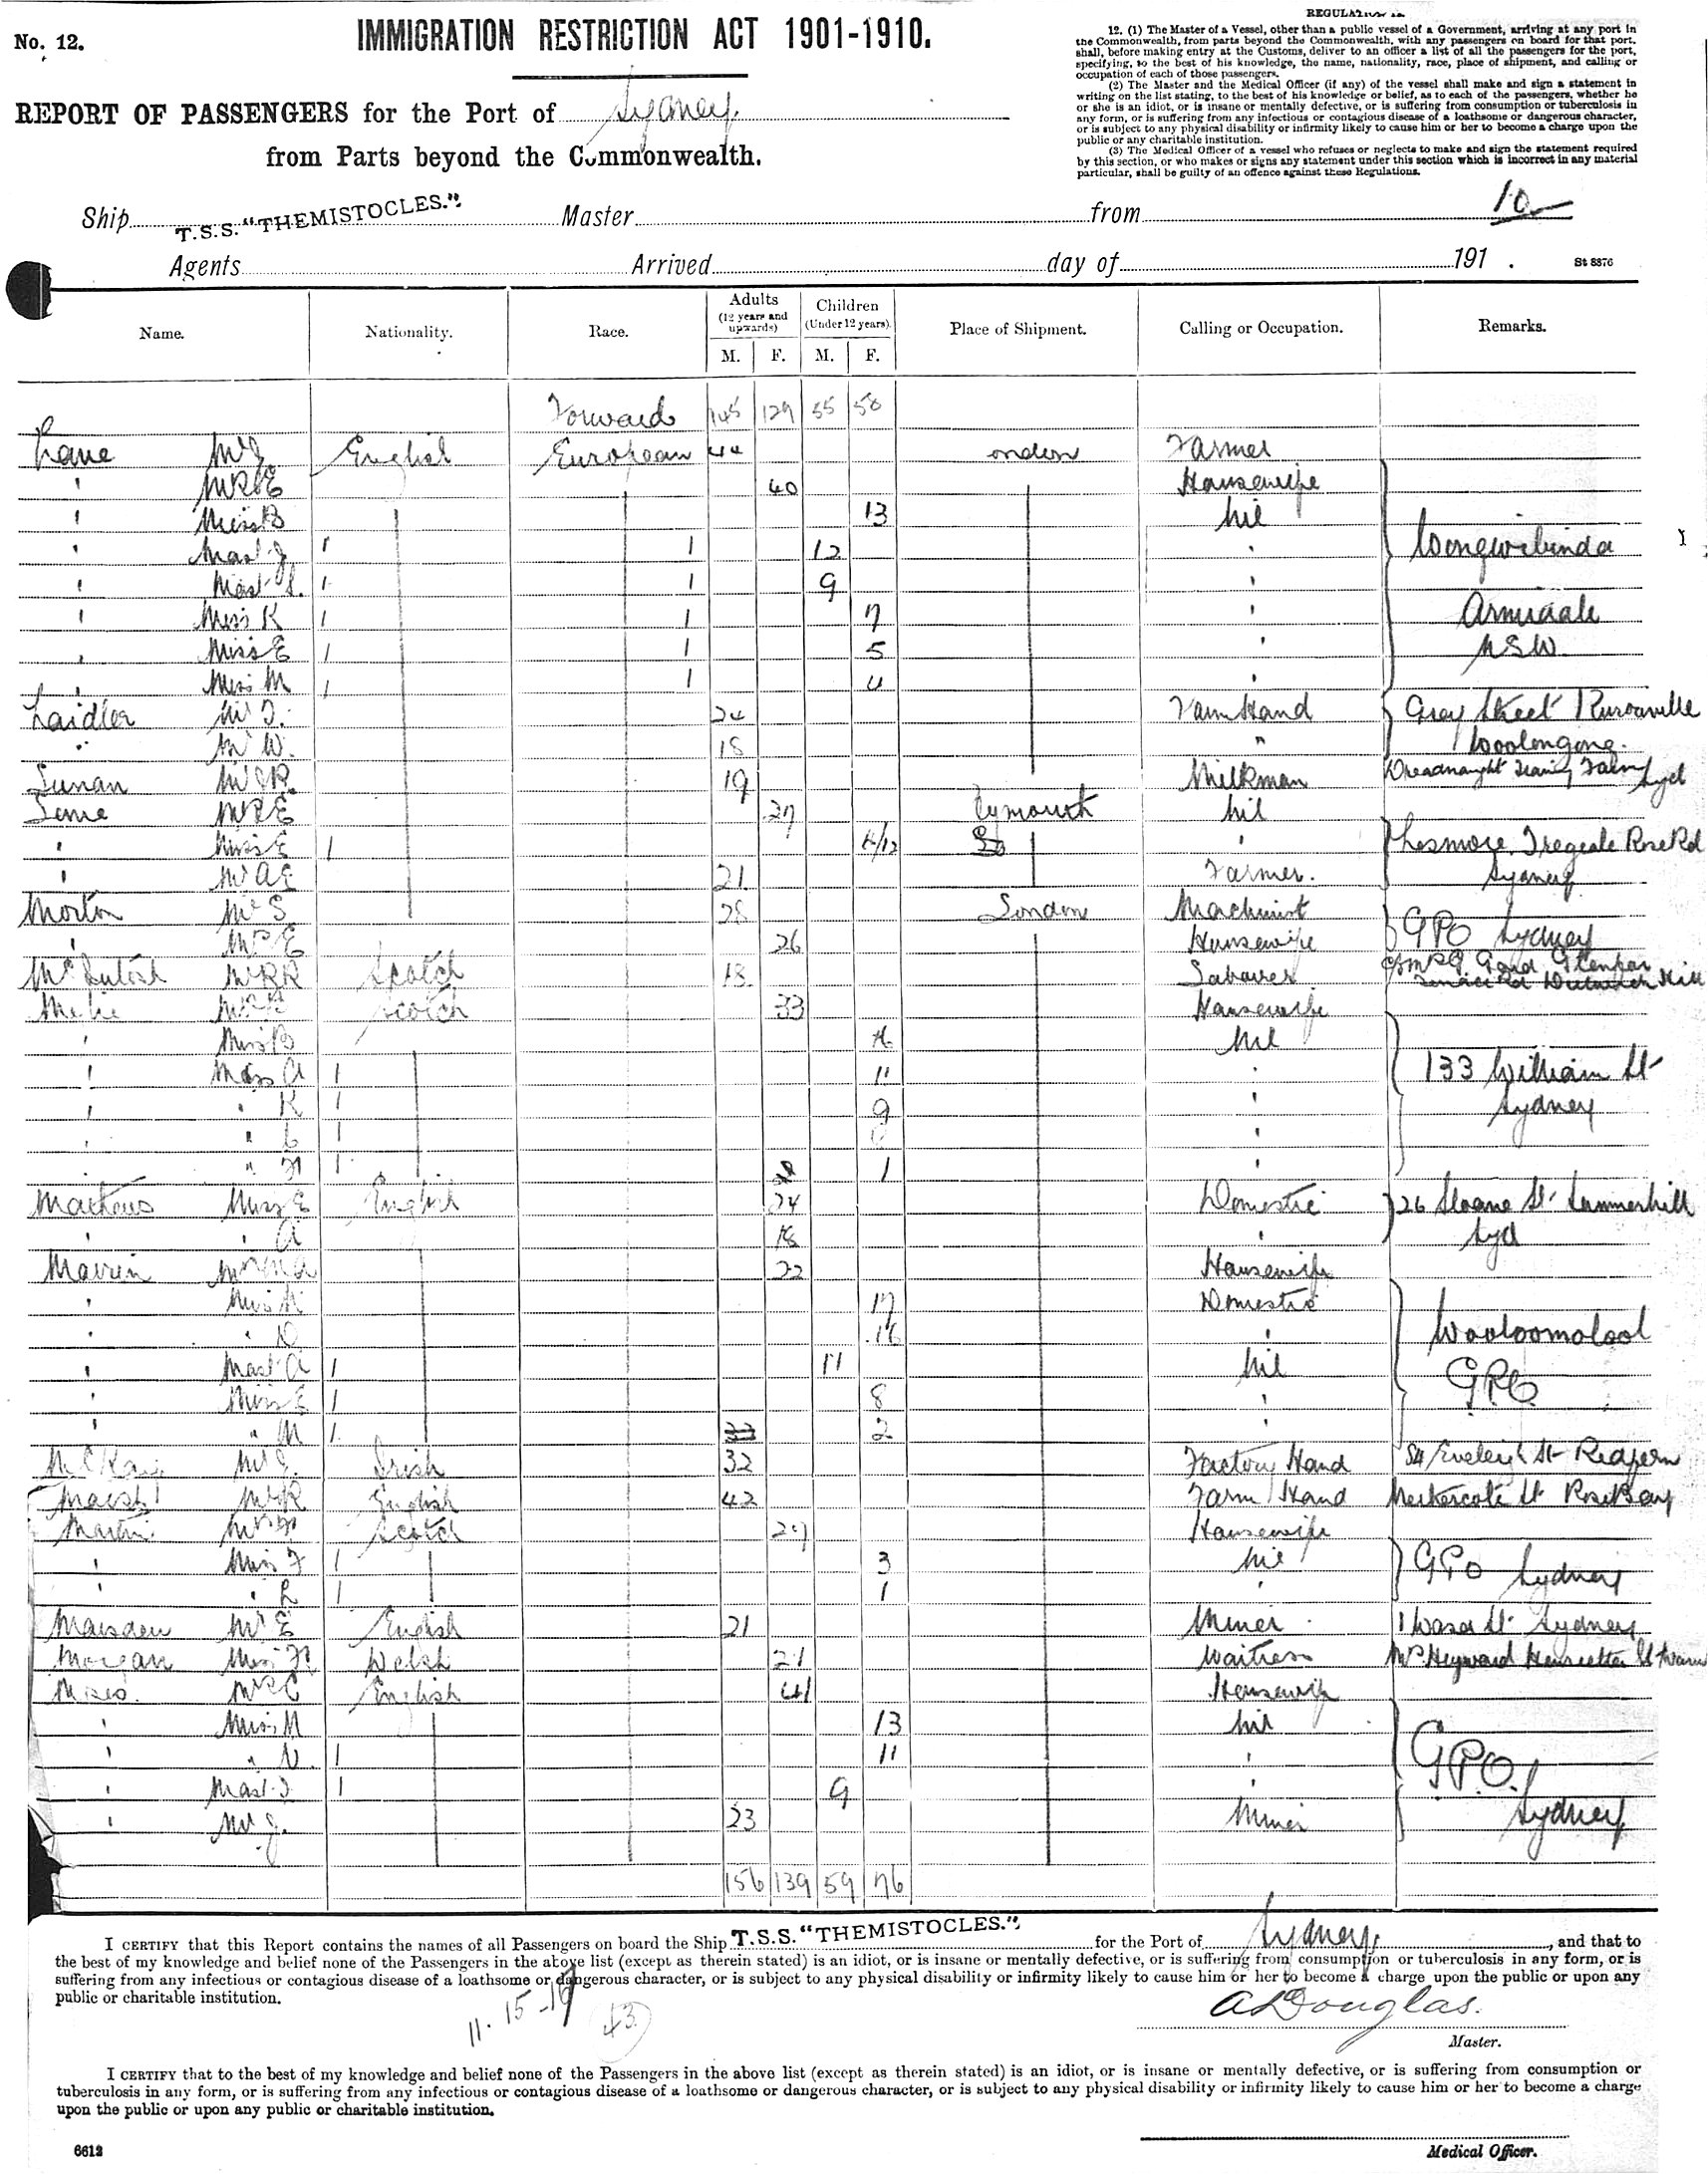 No. 12.
IMMIGRATION RESTRICTION ACT 1901-1910.
REPORT OF PASSENGERS for the Port of Sydney.
from Parts beyond the Commonwealth.
REGULATION 12.
12. (1) The Master of a Vessel, other than a public vessel of a Government, arriving at any port in
the Commonwealth, from parts beyond the Commonwealth, with any passengers on board for that port,
shall, before making entry at the Customs, deliver to an officer a list of all the passengers for the port,
specifying, to the best of his knowledge, the name, nationality, race, place of shipment, and calling or
occupation of each of those passengers.
(2) The Master and the Medical Officer (if any) of the vessel shall make and sign a statement in
writing on the list stating, to the best of his knowledge or belief, as to each of the passengers, whether he
or she is an idiot, or is insane or mentally defective, or is suffering from consumption or tuberculosis in
any form, or is suffering from any infectious or contagious disease of a loathsome or dangerous character,
or is subject to any physical disability or infirmity likely to cause him or her to become a charge upon the
public or any charitable institution.
(3) The Medical Officer of a vessel who refuses or neglects to make and sign the statement required
by this section, or who makes or signs any statement under this section which is incorrect in any material
particular, shall be guilty of an offence against these Regulations.
Ship T.S.S. "THEMISTOCLES." Master from 10
Agents Arrived day of 191 . St 8876
Name. Nationality. Race. Adults (12 years and upwards) M. F. Children (Under 12 years). M. F. Place of Shipment. Calling or Occupation. Remarks.
Forward 145 129 55 58
Lane Mr J English European 44 ondon Farmer
" Mrs E 40 Housewife
" Miss B 13 Nil
" Mast J " " 12 " Wongwibinda
" Mast L. " " 9 "
" Miss K " " 7 " Armidale
" Miss E " " 5 " NSW
" Miss M " " 4 "
Laidler Mr T. 24 Farm Hand Gray Street
" Mr W. 18 " Woolongong.
Lunan Mr R. 19 Milkman Dreadnaught Training Farm Syd
Mrs E 27 Plymouth Nil
" Miss E " "
" Mr A E 21 Farmer. Sydney
Morton Mr S 28 London Machinist GPO Sydney
" Mrs E 26 Housewife
McIntosh Mr R Scotch 18 Labourer
Mrs Scotch 33 Housewife
" Miss B Nil
" Miss A " 11 " 133 William St
" " K " 9 " Sydney
" " "
" " " 1 "
Mathews Miss E English 24 Domestic 26 Sloane St Summerhill
" " A 18 " Syd
Mrs M A 22 Housewife
" Miss 17 Domestic
" " D 16 " Wooloomolool
" Mast A " 11 Nil GPO
" Miss E " 8 "
" " M " 2 "
Mr J. Irish 32 Factory Hand 84 Eveleigh St Redfern
Marsh Mr R English 42 Farm Hand St Rose Bay
Martin Mrs Scotch 29 Housewife
" Miss F " 3 Nil GPO Sydney
" " L " 1 "
Marsden Mr E English 21 Miner St Sydney
Morgan Miss Welsh 21 Waitress Mrs Heyward Henrietta St
Mrs C English 41 Housewife
" Miss M 13 Nil
" " V. " 11 " GPO.
" Mast " 9 "
" Mr J. 23 Miner Sydney
156 139 59 76
I CERTIFY that this Report contains the names of all Passengers on board the Ship T.S.S. "THEMISTOCLES." for the Port of Sydney, and that to
the best of my knowledge and belief none of the Passengers in the above list (except as therein stated) is an idiot, or is insane or mentally defective, or is suffering from consumption or tuberculosis in any form, or is
suffering from any infectious or contagious disease of a loathsome or dangerous character, or is subject to any physical disability or infirmity likely to cause him or her to become a charge upon the public or upon any
public or charitable institution.
11. 15-17 43
A Douglas.
Master.
I CERTIFY that to the best of my knowledge and belief none of the Passengers in the above list (except as therein stated) is an idiot, or is insane or mentally defective, or is suffering from consumption or
tuberculosis in any form, or is suffering from any infectious or contagious disease of a loathsome or dangerous character, or is subject to any physical disability or infirmity likely to cause him or her to become a charge
upon the public or upon any public or charitable institution.
6612
Medical Officer.